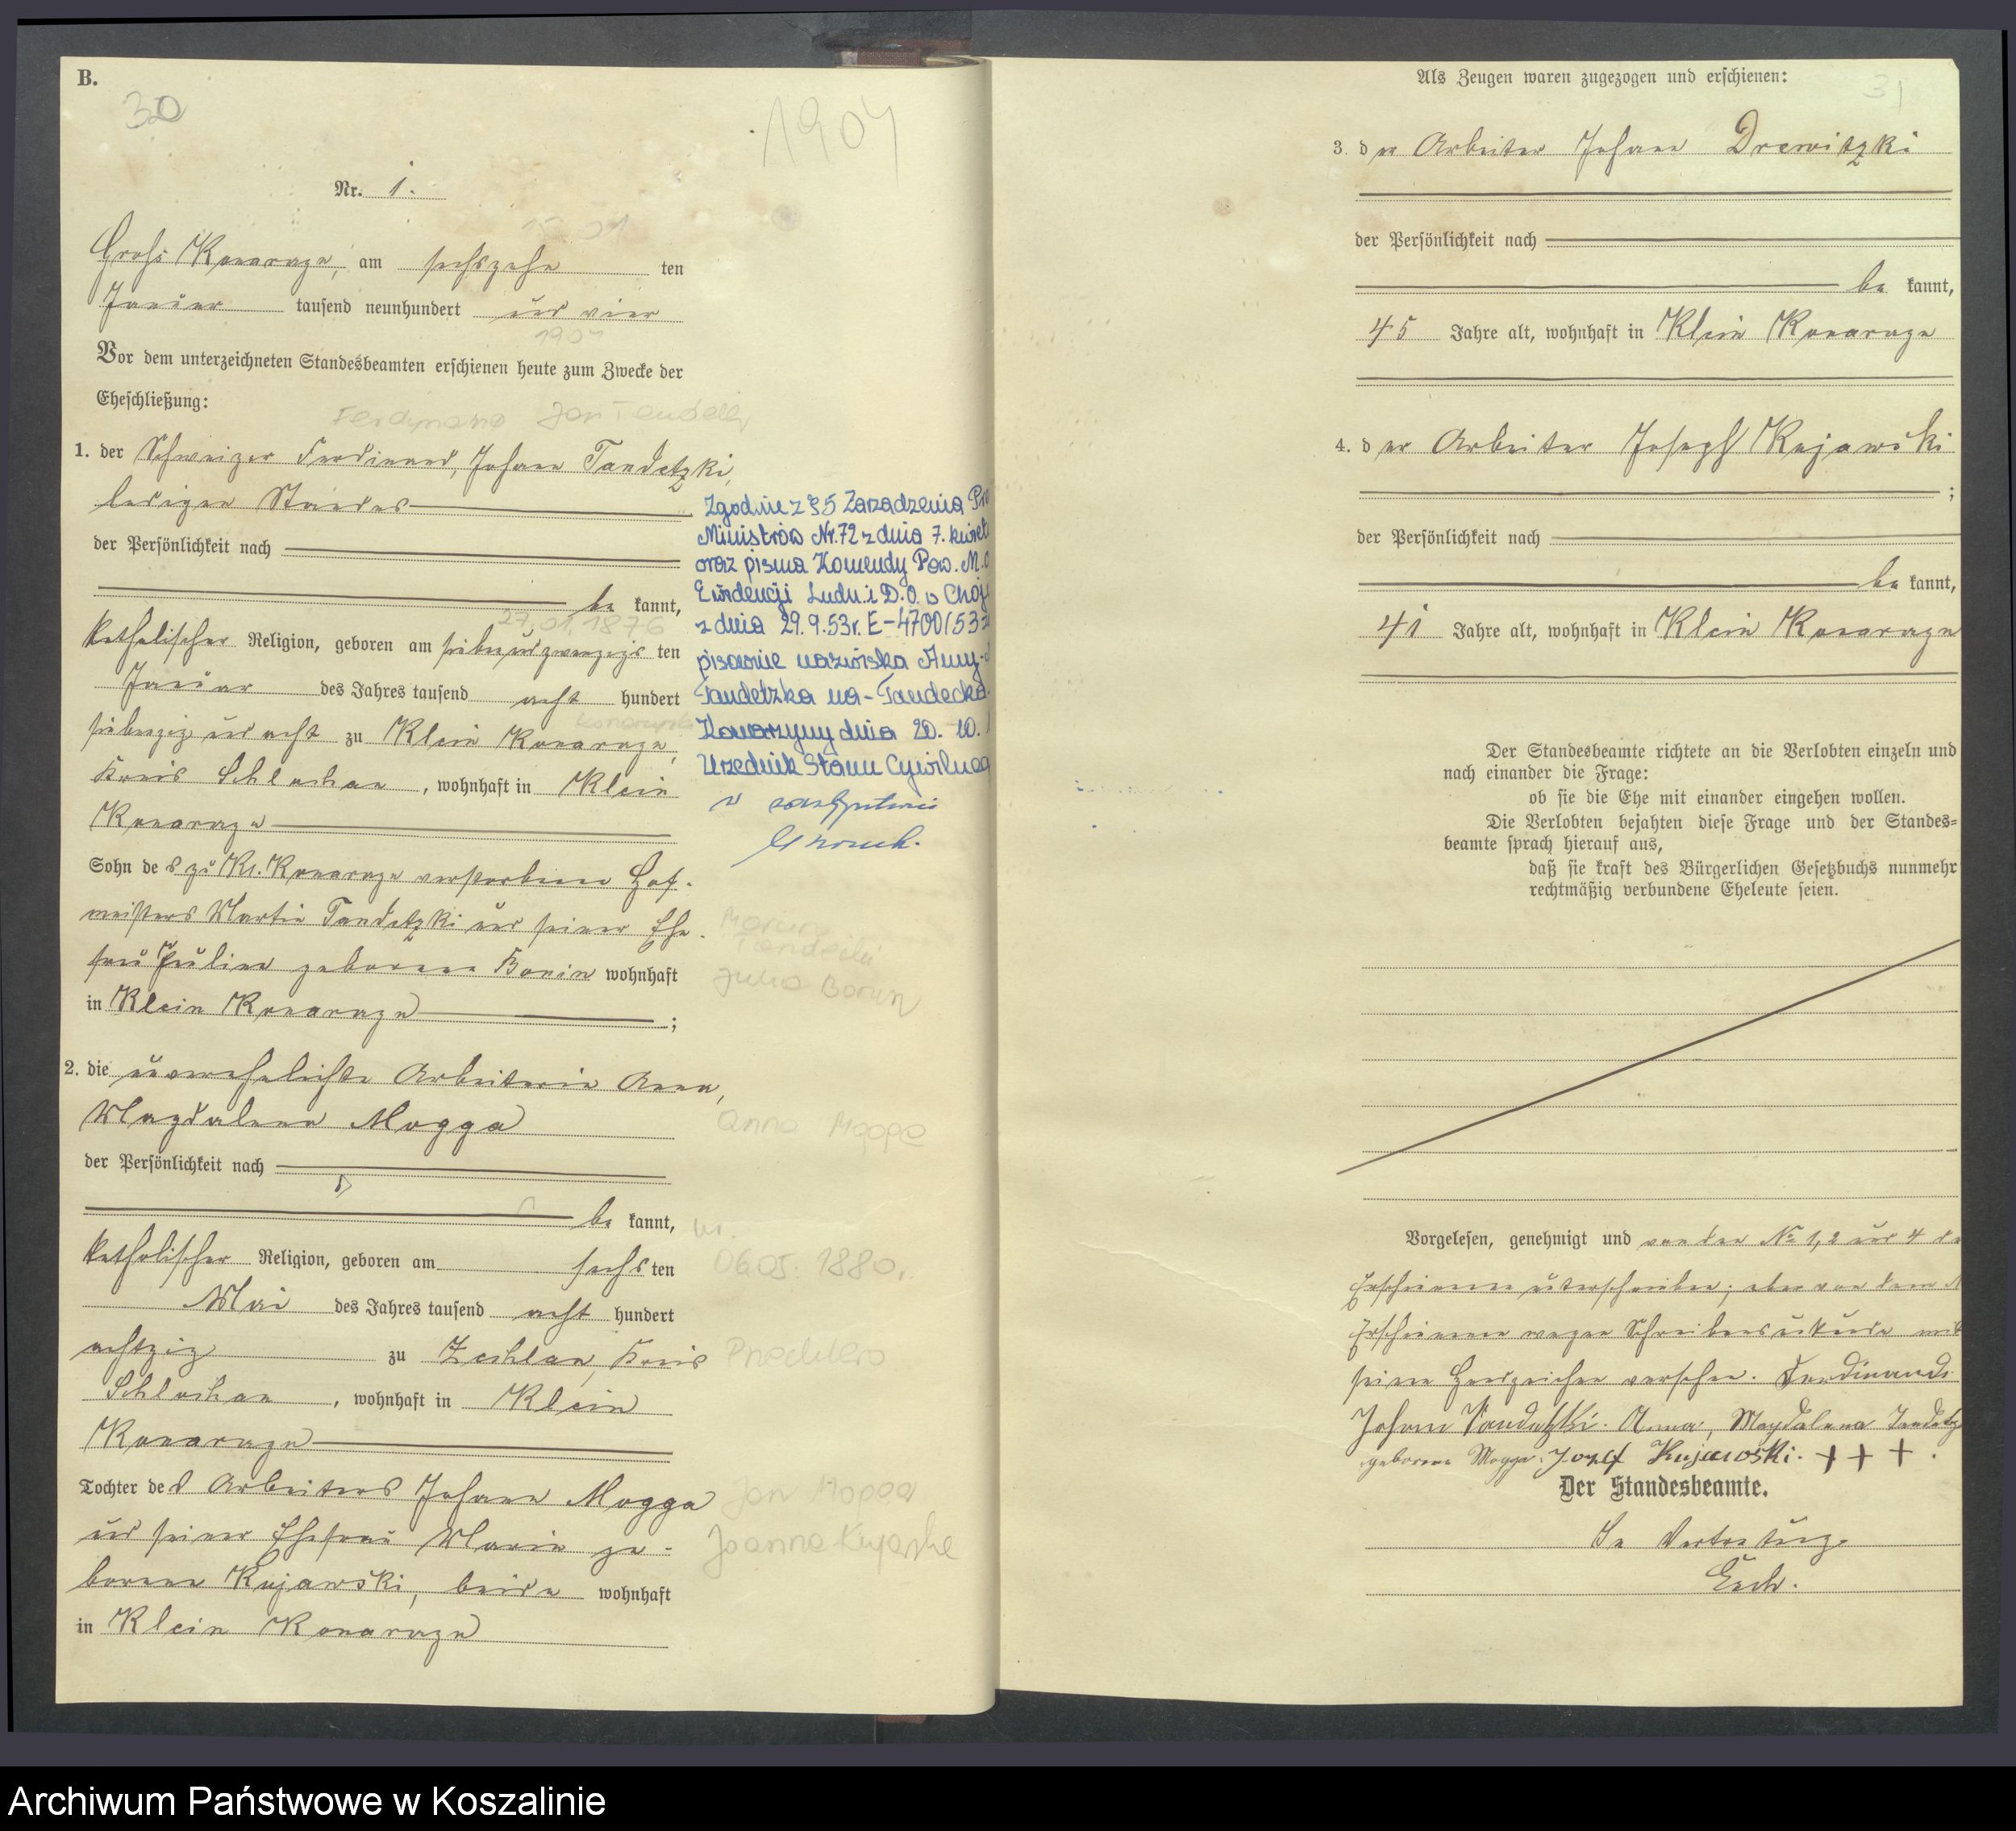 B.
30
1904
Nr. 1.
Groß Konarzyn, am sechszehn ten
Januar tausend neunhundert und vier
1904
Vor dem unterzeichneten Standesbeamten erschienen heute zum Zwecke der
Eheschließung:
1. der Schweizer Ferdinand, Johann Tandetzki,
ledigen Standes
der Persönlichkeit nach
be kannt,
27.01.1876
katholischer Religion, geboren am siebenundzwanzigs ten
Januar des Jahres tausend acht hundert
siebenzig und acht zu Klein Konarzyn,
Kreis Schlochau, wohnhaft in Klein
Konarzyn
Sohn des zu Kl. Konarzyn verstorbenen Hof-
meisters Martin Tandetzki und seiner Ehe-
frau Julina geborenen Bonin wohnhaft
in Klein Konarzyn ;
Zgodnie z § 5 Zarządzenia
Ministrów Nr. 72 z dnia 7.
oraz pisma Komendy Pow. M.O
Ewidencji Ludn. i D.O. w
z dnia 29.9.53r. E-4700/53
pisownię nazwiska Anny
Tandetzka na - Tandecka
Konarzyny dnia 20. 10.
Urzednik Stanu
w zastępstwie
2. die unverehelichte Arbeiterin Anna,
Magdalena Mogga
Anna
der Persönlichkeit nach
be kannt,
katholischer Religion, geboren am sechs ten
06.05.1880.
Mai des Jahres tausend acht hundert
achtzig zu Zechlau, Kreis
Schlochau, wohnhaft in Klein
Konarzyn
Tochter des Arbeiters Johann Mogga
und seiner Ehefrau Marie ge-
borene Kujawski, beide wohnhaft
in Klein Konarzyn
Als Zeugen waren zugezogen und erschienen:
31
3. der Arbeiter Johann Drewitzki
der Persönlichkeit nach
be kannt,
45 Jahre alt, wohnhaft in Klein Konarzyn
4. der Arbeiter Joseph Kujawski
;
der Persönlichkeit nach
be kannt,
41 Jahre alt, wohnhaft in Klein Konarzyn
Der Standesbeamte richtete an die Verlobten einzeln und
nach einander die Frage:
ob sie die Ehe mit einander eingehen wollen.
Die Verlobten bejahten diese Frage und der Standes=
beamte sprach hierauf aus,
daß sie kraft des Bürgerlichen Gesetzbuchs nunmehr
rechtmäßig verbundene Eheleute seien.
Vorgelesen, genehmigt und von den No 1, 2 und 4
Erschienenen unterschrieben, aber von dem
Erschienenen wegen Schreibensunkunde mit
seinem Handzeichen versehen. Ferdinand
Johann Tandetzki. Anna, Magdalena
geborene Mogga. Josef Kujawski. + + +.
Der Standesbeamte.
In Vertretung.
Archiwum Państwowe w Koszalinie